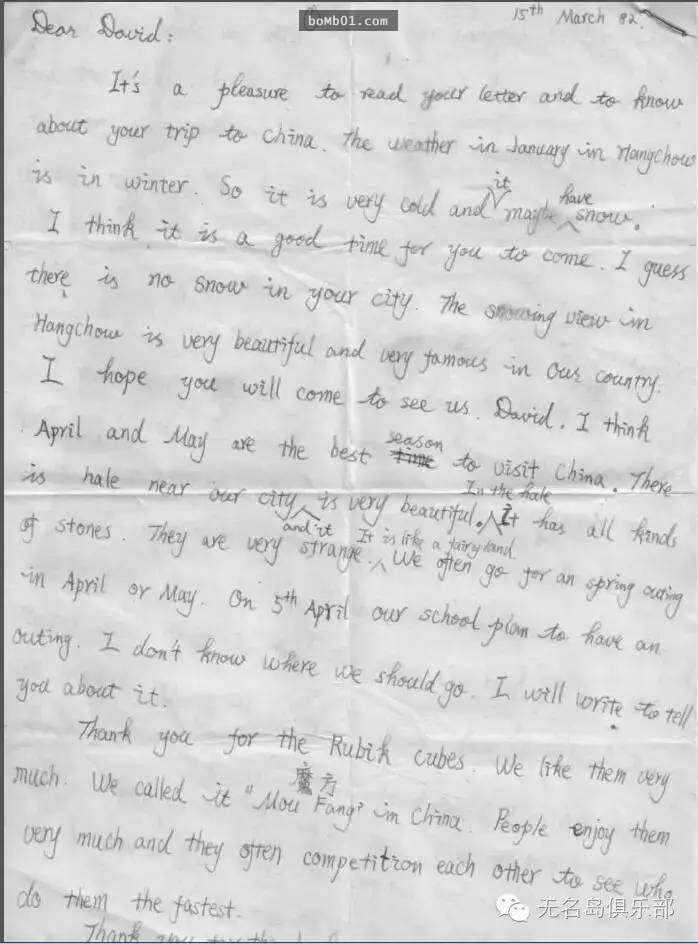 bomb01.com
15th March 82.
Dear David:
It's a pleasure to read your letter and to know
about your trip to China. The weather in January in Hangchow
is in winter. So it is very cold and it maybe have snow.
I think it is a good time for you to come. I guess
there is no snow in your city. The snowing view in
Hangchow is very beautiful and very famous in our country.
I hope you will come to see us. David. I think
April and May are the best time season to visit China. There
is hale near our city and it is very beautiful. In the hale It has all kinds
of stones. They are very strange. It is like a fairyland. We often go for an spring outing
in April or May. On 5th April our school plan to have an
outing. I don't know where we should go. I will write to tell
you about it.
Thank you for the Rubik cubes. We like them very
much. We called it "Mou Fang" 魔方 in China. People enjoy them
very much and they often competition each other to see who
do them the fastest.
Thank you for the
无名岛俱乐部